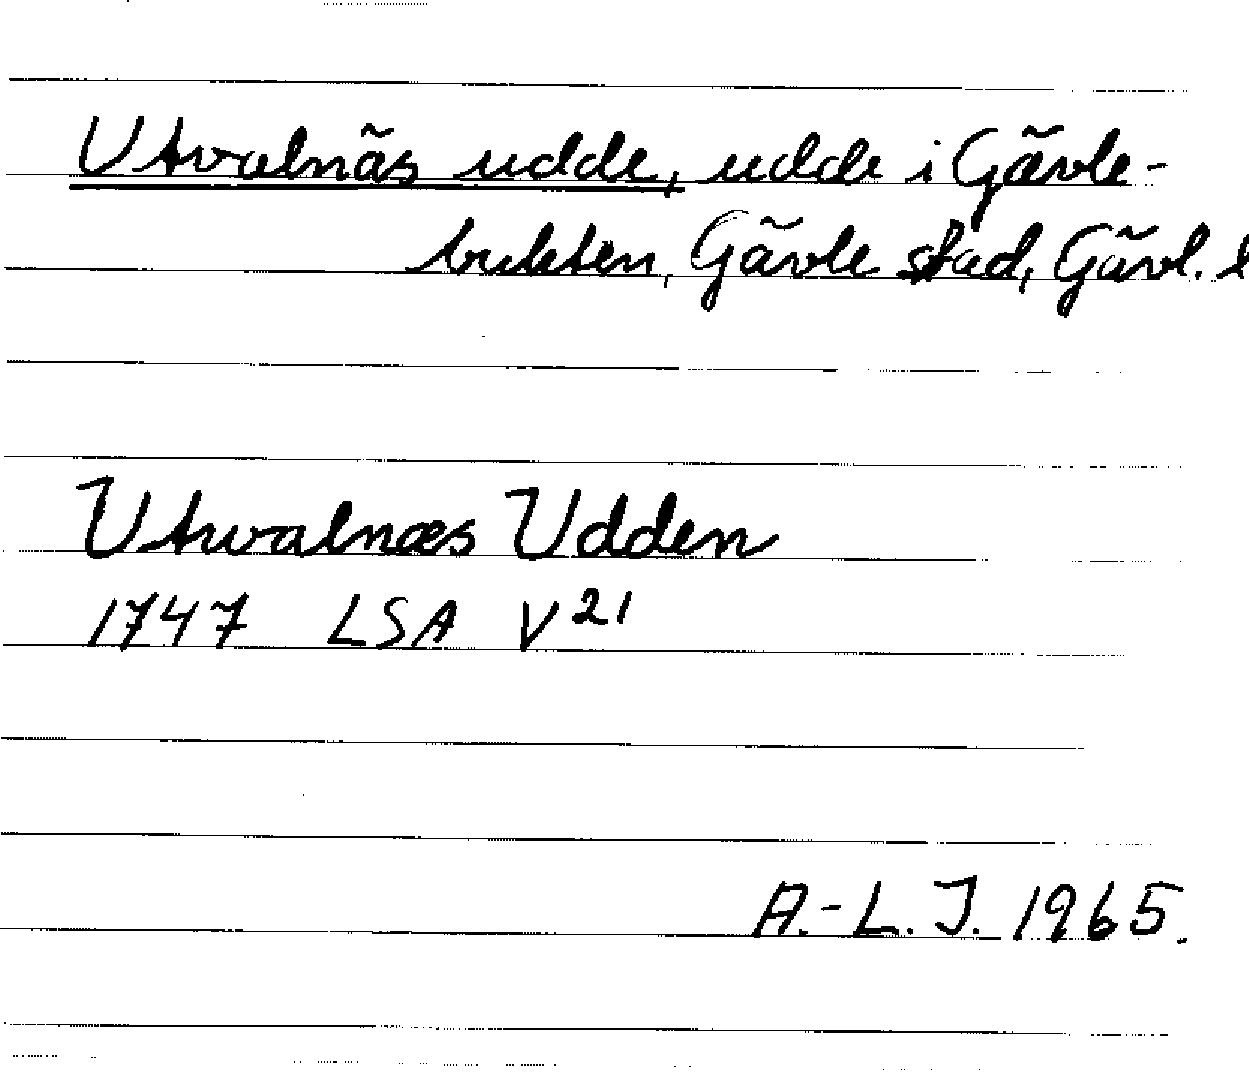 Utvalnäs udde, udde i Gävle-
bukten, Gävle stad, Gävl. l
Utwalnæs Udden
1747 LSA V²¹
A.-L. J. 1965.